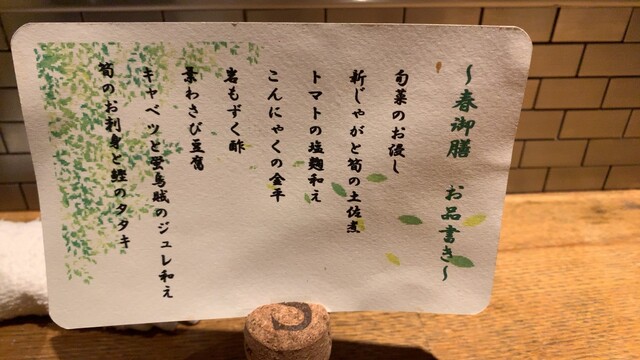 ～春御膳 お品書き～
旬菜のお浸し
新じゃがと筍の土佐煮
トマトの塩麹和え
こんにゃくの金平
岩もずく酢
葉わさび豆腐
キャベツと蛍烏賊のジュレ和え
筍のお刺身と鰹のタタキ